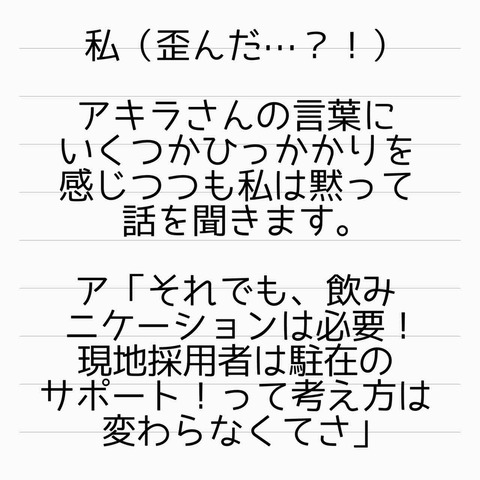 私（歪んだ…？！）
アキラさんの言葉に
いくつかひっかかりを
感じつつも私は黙って
話を聞きます。
ア「それでも、飲み
ニケーションは必要！
現地採用者は駐在の
サポート！って考え方は
変わらなくてさ」